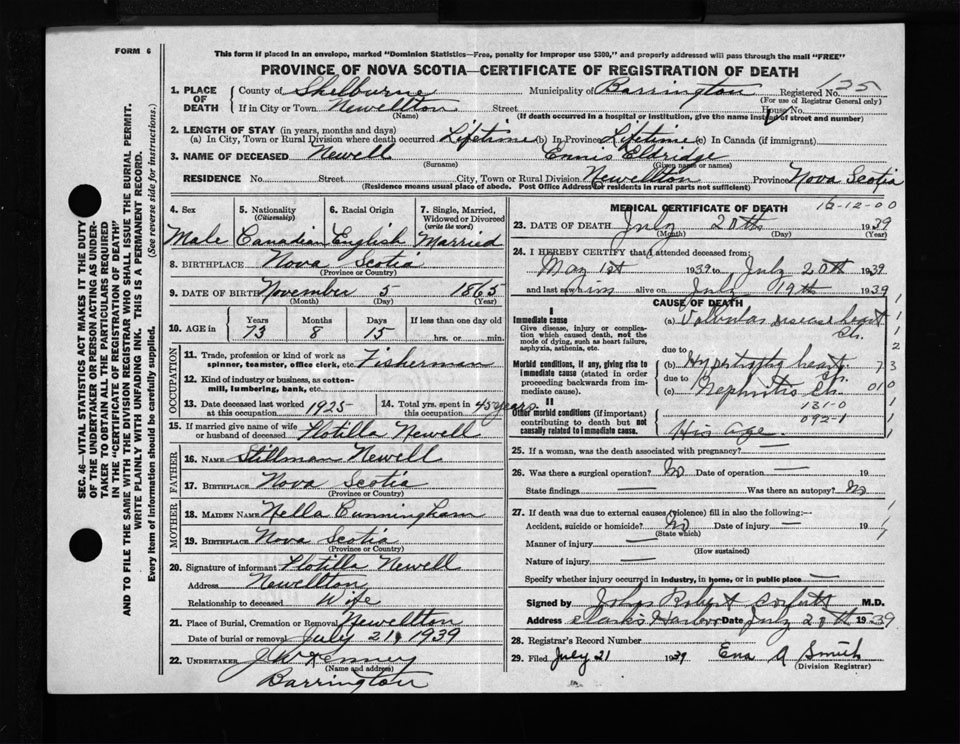 FORM 6
This form if placed in an envelope, marked "Dominion Statistics—Free, penalty for improper use $300," and properly addressed will pass through the mail "FREE"
PROVINCE OF NOVA SCOTIA—CERTIFICATE OF REGISTRATION OF DEATH
125
1. PLACE OF DEATH County of Shelburne Municipality of Barrington Registered No.
(For use of Registrar General only)
If in City or Town Newellton Street House No.
(Name) (If death occurred in a hospital or institution, give the name instead of street and number)
2. LENGTH OF STAY (in years, months and days)
(a) In City, Town or Rural Division where death occurred Lifetime (b) In Province Lifetime (c) In Canada (if immigrant)
3. NAME OF DECEASED Newell Ennis Eldridge
(Surname) (Given name or names)
RESIDENCE No. Street City, Town or Rural Division Newellton Province Nova Scotia
(Residence means usual place of abode. Post Office Address for residents in rural parts not sufficient)
4. Sex Male
5. Nationality (Citizenship) Canadian
6. Racial Origin English
7. Single, Married, Widowed or Divorced (write the word) Married
8. BIRTHPLACE Nova Scotia
(Province or Country)
9. DATE OF BIRTH November 5 1865
(Month) (Day) (Year)
10. AGE in Years Months Days If less than one day old
73 8 15 hrs. or min.
OCCUPATION
11. Trade, profession or kind of work as spinner, teamster, office clerk, etc. Fisherman
12. Kind of industry or business, as cotton-mill, lumbering, bank, etc.
13. Date deceased last worked at this occupation 1925
14. Total yrs. spent in this occupation 45 years
15. If married give name of wife or husband of deceased Flotilla Newell
FATHER
16. NAME Stillman Newell
17. BIRTHPLACE Nova Scotia
(Province or Country)
MOTHER
18. MAIDEN NAME Nella Cunningham
19. BIRTHPLACE Nova Scotia
(Province or Country)
20. Signature of informant Flotilla Newell
Address Newellton
Relationship to deceased Wife
21. Place of Burial, Cremation or Removal Newellton
Date of burial or removal July 21, 1939
22. UNDERTAKER J W Kenney
(Name and address)
Barrington
MEDICAL CERTIFICATE OF DEATH
16-12-00
23. DATE OF DEATH July 20th 1939
(Month) (Day) (Year)
24. I HEREBY CERTIFY that I attended deceased from
May 1st 1939 to July 20th 1939
and last saw him alive on July 19th 1939
CAUSE OF DEATH
I
Immediate cause (a) Valbular disease heart Ch.
Give disease, injury or complication which caused death, not the mode of dying, such as heart failure, asphyxia, asthenia, etc.
due to
Morbid conditions, if any, giving rise to immediate cause (stated in order proceeding backwards from immediate cause).
(b) Hypertrophy heart Ch.
due to
(c) Nephritis Ch.
131-0
092-1
II
Other morbid conditions (if important) contributing to death but not causally related to immediate cause.
His age
25. If a woman, was the death associated with pregnancy?
26. Was there a surgical operation? No Date of operation — 19
State findings — Was there an autopsy? No
27. If death was due to external causes (violence) fill in also the following:—
Accident, suicide or homicide? No Date of injury — 19
(State which)
Manner of injury —
(How sustained)
Nature of injury —
Specify whether injury occurred in industry, in home, or in public place —
Signed by Robert M.D.
Address Clarks Harbor Date July 20th 1939
28. Registrar's Record Number
29. Filed July 21 1939 Ena A Smith
(Division Registrar)
SEC. 46—VITAL STATISTICS ACT MAKES IT THE DUTY
OF THE UNDERTAKER OR PERSON ACTING AS UNDER-
TAKER TO OBTAIN ALL THE PARTICULARS REQUIRED
IN THE "CERTIFICATE OF REGISTRATION OF DEATH"
AND TO FILE THE SAME WITH THE DIVISION REGISTRAR WHO SHALL ISSUE THE BURIAL PERMIT.
WRITE PLAINLY WITH UNFADING INK. THIS IS A PERMANENT RECORD.
Every item of information should be carefully supplied. (See reverse side for instructions.)